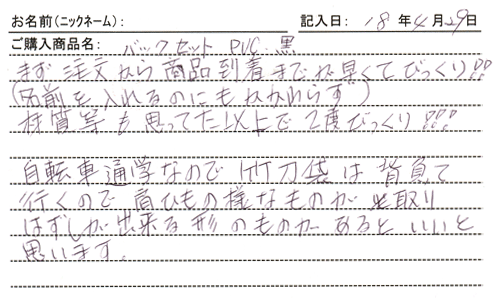 お名前(ニックネーム): 記入日: 18 年 4 月 29 日
ご購入商品名: バックセット PVC 黒
まず 注文から 商品到着までが早くてびっくり!!
(名前を入れるのにもかかわらず)
材質等も思ってた以上で2度びっくり!!!
自転車通学なので竹刀袋は背負って
行くので肩ひもの様なものが 取り
はずしが出来る形のものが あると いいと
思います。